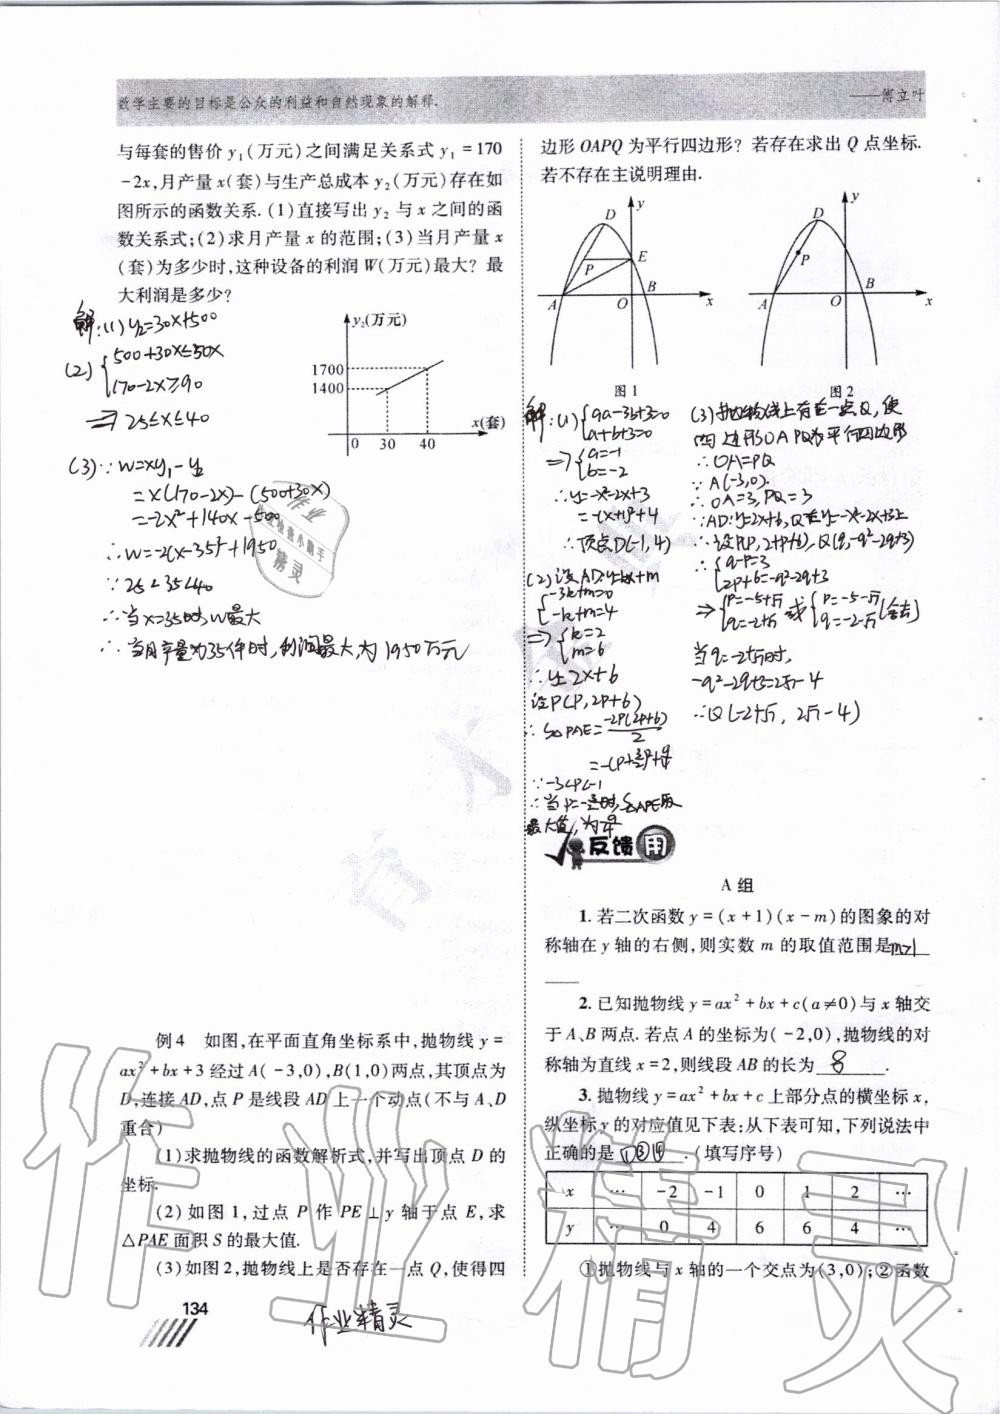 数学主要的目标是公众的利益和自然现象的解释.
——傅立叶
与每套的售价 y₁(万元)之间满足关系式 y₁=170
-2x,月产量 x(套)与生产总成本 y₂(万元)存在如
图所示的函数关系.(1)直接写出 y₂ 与 x 之间的函
数关系式;(2)求月产量 x 的范围;(3)当月产量 x
(套)为多少时,这种设备的利润 W(万元)最大? 最
大利润是多少?
解:(1) y₂=30x+500
(2) {500+30x≤50x
170-2x≥90
⇒ 25≤x≤40
(3)∵W=xy₁-y₂
=x(170-2x)-(500+30x)
=-2x²+140x-500
∴W=-2(x-35)²+1950
∵25<35<40
∴当x=35时,W最大
∴当月产量为35件时,利润最大,为1950万元
y₂(万元)
1700
1400
0 30 40
x(套)
例4 如图,在平面直角坐标系中,抛物线 y=
ax²+bx+3 经过 A(-3,0),B(1,0)两点,其顶点为
D,连接 AD,点 P 是线段 AD 上一个动点(不与 A、D
重合)
(1)求抛物线的函数解析式,并写出顶点 D 的
坐标.
(2)如图1,过点 P 作 PE⊥y 轴于点 E,求
△PAE 面积 S 的最大值.
(3)如图2,抛物线上是否存在一点 Q,使得四
134
作业精灵
边形 OAPQ 为平行四边形? 若存在求出 Q 点坐标.
若不存在主说明理由.
D y P E A O B x
图1
D y P A O B x
图2
解:(1) {9a-3b+3=0
a+b+3=0
⇒{a=-1
b=-2
∴y=-x²-2x+3
=-(x+1)²+4
∴顶点D(-1,4)
(2)设AD:y=kx+m
{-3k+m=0
-k+m=4
⇒{k=2
m=6
∴y=2x+6
设P(P,2P+6)
∴S△PAE=-2P(2P+6)/2
∵-3<P<-1
最大值,为9/4
(3)抛物线上存在一点Q,使
四边形OAPQ为平行四边形
∴OA=PQ
∵A(-3,0).
∴OA=3,PQ=3
∵AD:y=2x+6,Q在y=-x²-2x+3上
∴设P(P,2P+6),Q(q,-q²-2q+3)
∴{q-P=3
2P+6=-q²-2q+3
⇒{P=-5+√7
q=-2+√7 或 {P=-5-√7
q=-2-√7 (舍去)
当q=-2+√7时,
-q²-2q+3=2√7-4
∴Q(-2+√7, 2√7-4)
反馈用
A 组
1. 若二次函数 y=(x+1)(x-m)的图象的对
称轴在 y 轴的右侧,则实数 m 的取值范围是m>1
2. 已知抛物线 y=ax²+bx+c(a≠0)与 x 轴交
于 A、B 两点. 若点 A 的坐标为(-2,0),抛物线的对
称轴为直线 x=2,则线段 AB 的长为 8 .
3. 抛物线 y=ax²+bx+c 上部分点的横坐标 x,
纵坐标 y 的对应值见下表:从下表可知,下列说法中
正确的是 ①③④ .(填写序号)
x … -2 -1 0 1 2 …
y … 0 4 6 6 4 …
①抛物线与 x 轴的一个交点为(3,0);②函数